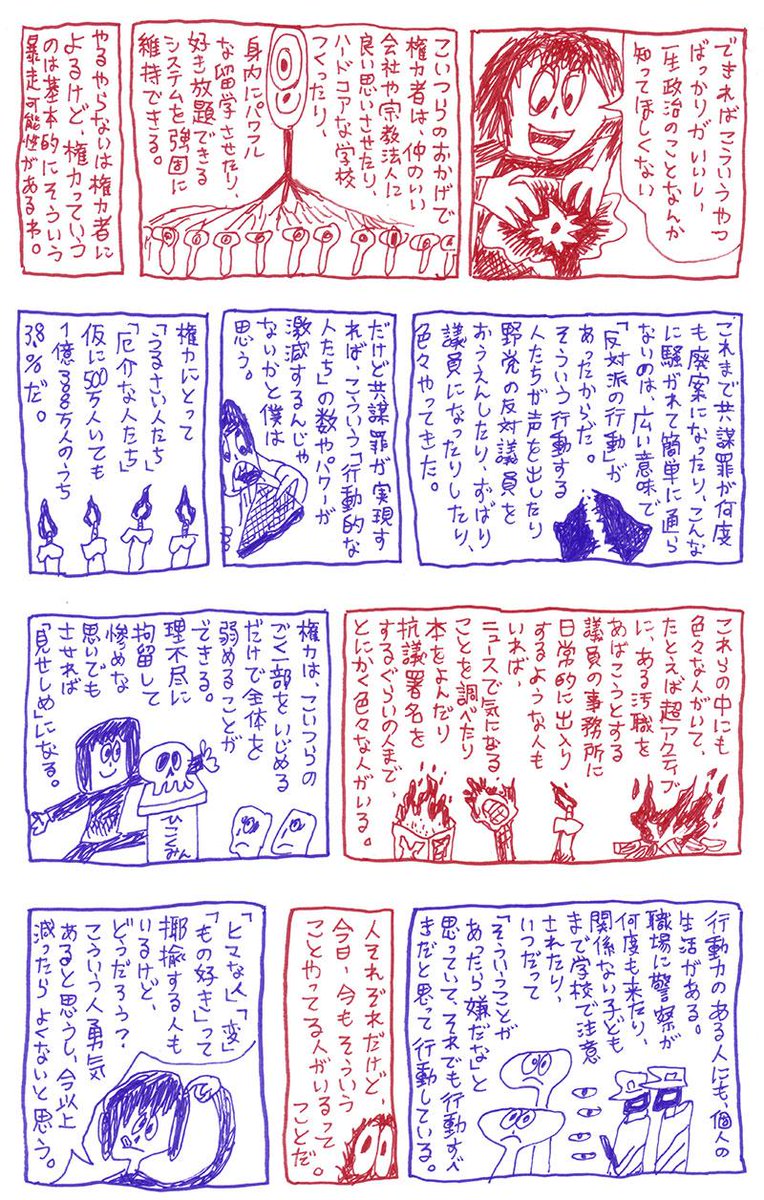 できればこういうやつ
ばっかりがいいし、
一生政治のことなんか
知ってほしくない
こいつらのおかげで
権力者は、仲のいい
会社や宗教法人に
良い思いさせたり、
ハードコアな学校
つくったり、
身内にパワフル
な留学させたり、
好き放題できる
システムを強固に
維持できる。
やるやらないは権力者に
よるけど、権力っていう
のは基本的にそういう
暴走可能性があるわ。
これまで共謀罪が何度
も廃案になったり、こんな
に騒がれて簡単に通ら
ないのは、広い意味で
「反対派の行動」が
あったからだ。
そういう行動する
人たちが声を出したり
野党の反対議員を
おうえんしたり、ずばり
議員になったりしたり、
色々やってきた。
だけど共謀罪が実現す
れば、こういう「行動的な
人たち」の数やパワーが
激減するんじゃ
ないかと僕は
思う。
権力にとって
「うるさい人たち」
「厄介な人たち」
仮に500万人いても
1億
万人のうち
3.8%だ。
これらの中にも
色々な人がいて、
たとえば超アクティブ
に、ある汚職を
あばこうとする
議員の事務所に
日常的に出入り
するような人も
いれば、
ニュースで気になる
ことを調べたり
本をよんだり
抗議署名を
するぐらいの人まで、
とにかく色々な人がいる。
権力は、こいつらの
ごく一部をいじめる
だけで全体を
弱めることが
できる。
理不尽に
拘留して
惨めな
思いでも
させれば
「見せしめ」になる。
ひこくみん
行動力のある人にも、個人の
生活がある。
職場に警察が
何度も来たり、
関係ない子ども
まで学校で注意
されたり、
いつだって
「そういうことが
あったら嫌だな」と
思っていて、それでも行動すべ
きだと思って行動している。
人それぞれだけど、
今日、今もそういう
ことやってる人がいるって
ことだ。
「ヒマな人」「変」
「もの好き」って
揶揄する人も
いるけど、
どうだろう？
こういう人勇気
あると思うし、今以上
減ったらよくないと思う。